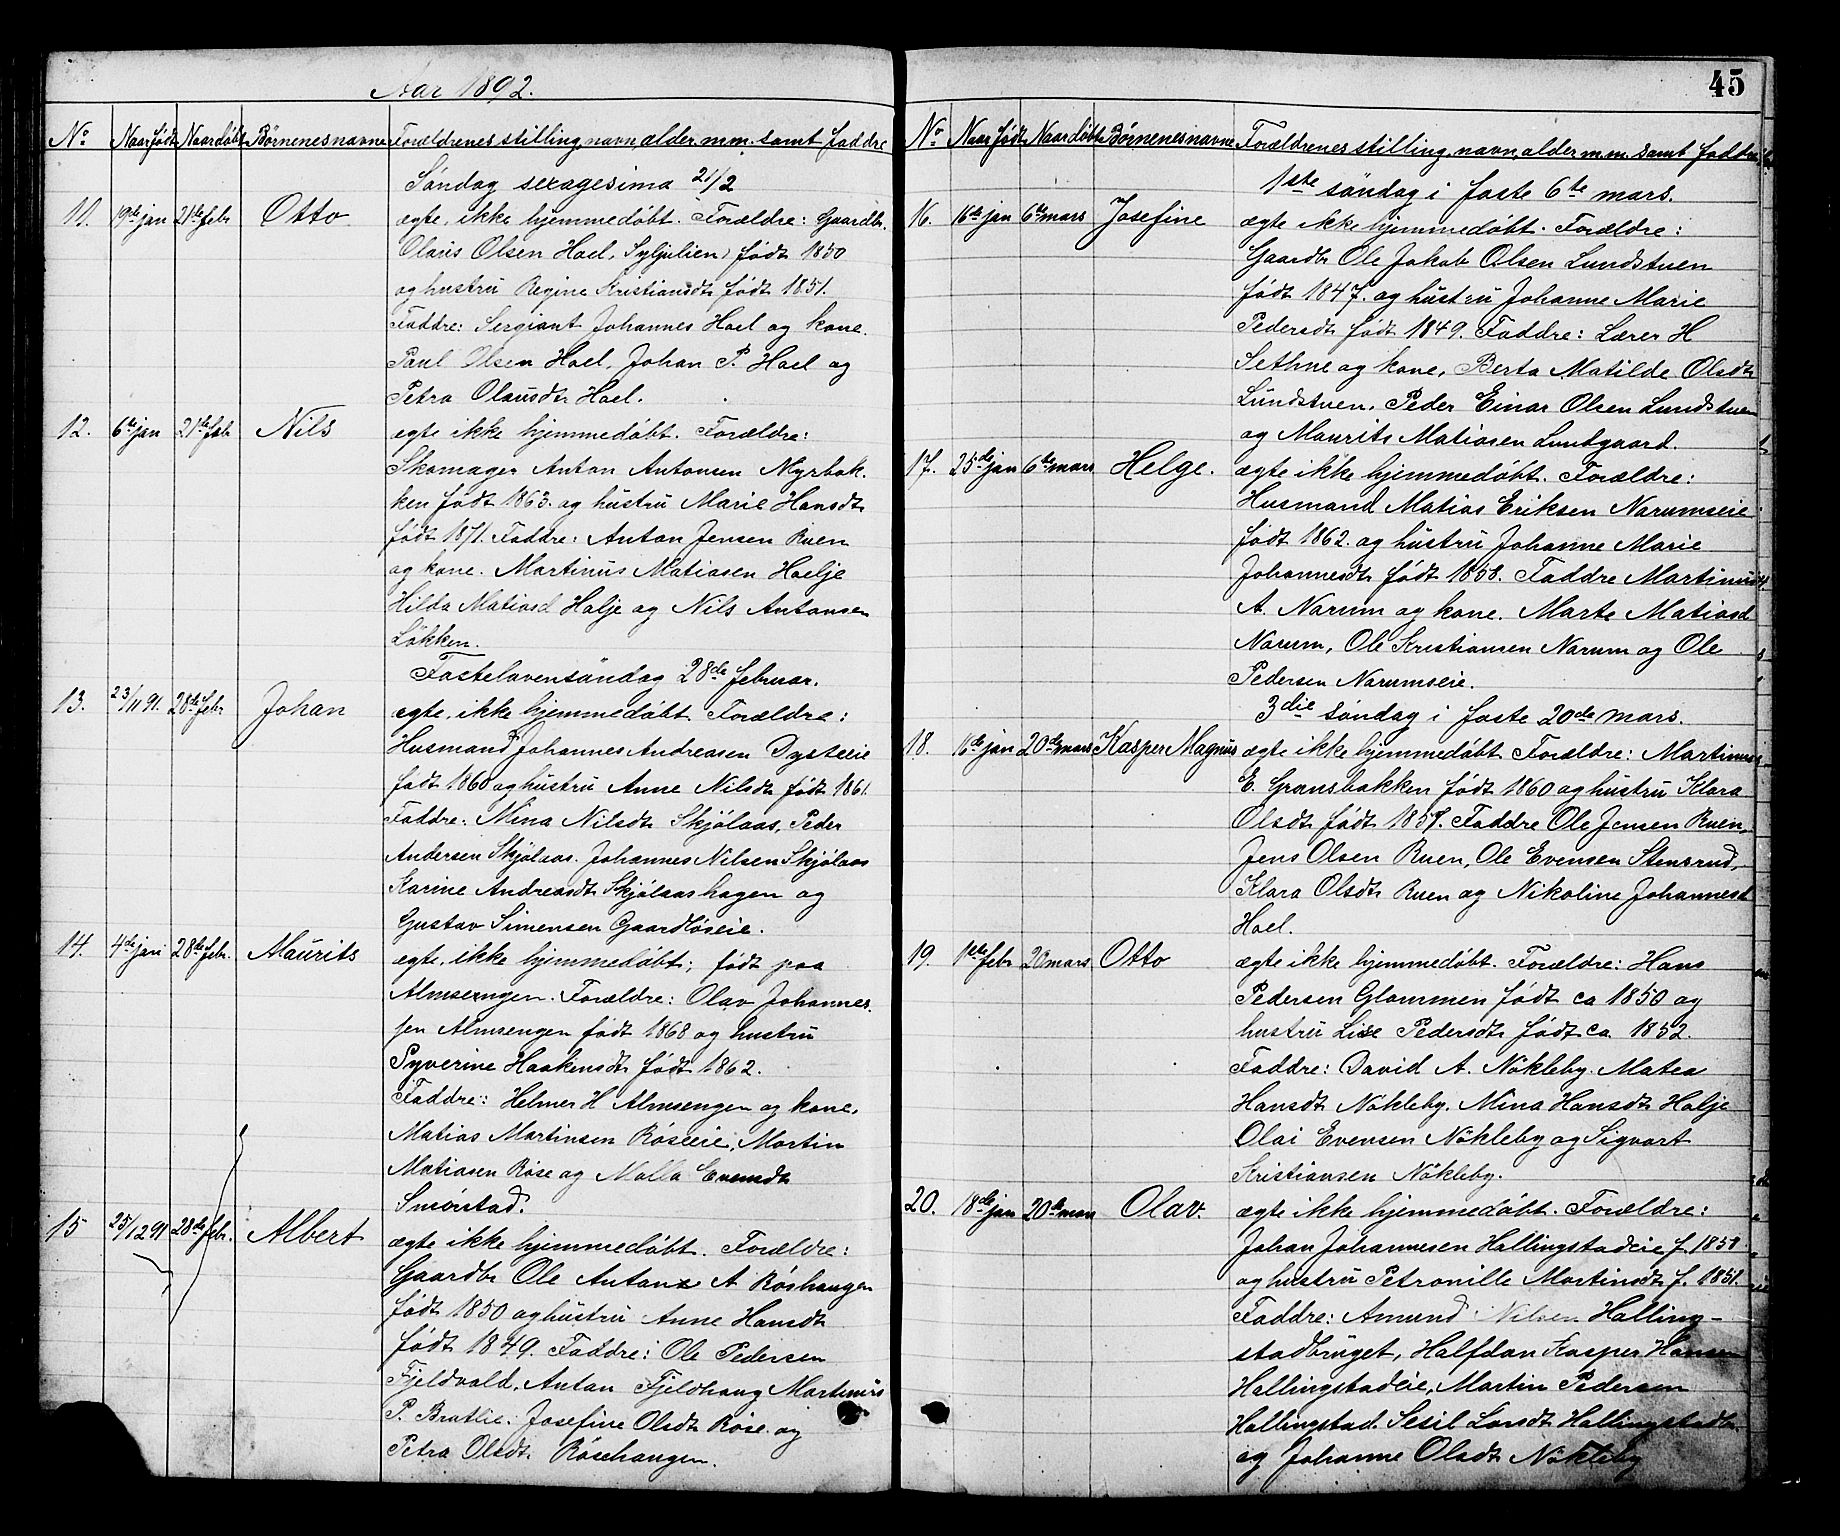 Aar 1892.
No Naarfödt Naardöbt Börnenes navne Forældrenes stilling, navn, alder m.m. samt faddre
Söndag sexagesima 21/2
11. 19de jan 21de febr Otto ægte, ikke hjemmedöbt. Forældre: Gaardbr.
Olaus Olsen Hoel, Syljulien, födt 1850
og hustru Regine Kristiansdt födt 1851.
Faddre: Sergiant Johannes Hoel og kone.
Paul Olsen Hoel, Johan P. Hoel og
Petra Olausdt Hoel.
12. 6te jan 21de feb Nils egte ikke hjemmedöbt. Forældre:
Skomager Anton Antonsen Myrbak-
ken födt 1863. og hustru Marie Hansdt
födt 1871. Faddre: Anton Jensen Ruen
og kone. Martinus Matiasen Hoelje
Hilda Matiasd Halje og Nils Antonsen
Lökken.
Fastelavensöndag 28de februar.
13. 23/11 91. 28de febr Johan ægte, ikke hjemmedöbt. Forældre:
Husmand Johannes Andreasen Dysteeie
födt 1860 og hustru Anne Nilsdt födt 1861.
Faddre: Mina Nilsdt Skjölaas, Peder
Andersen Skjölaas. Johannes Nilsen Skjölaas
Karine Andreasdt Skjölaashagen og
Gustav Simensen Gaardlöseie.
14. 4de jan 28de febr. Maurits ægte, ikke hjemmedöbt; födt paa
Almsengen. Forældre: Olav Johannes-
sen Almsengen födt 1868 og hustru
Syverine Haakensdt födt 1862.
Faddre: Helmer H Almsengen og kone.
Matias Martinsen Röseeie, Martin
Matiasen Röse og Malla Evensdt
Smörstad.
15 25/12 91 28de febr. Albert ægte ikke hjemmedöbt. Forældre:
Gaardbr Ole Anton A Röshaugen
födt 1850 og hustru Anne Hansdt
födt 1849. Faddre: Ole Pedersen
Fjeldvold, Anton Fjeldhaug Martinus
P. Bratlie. Josefine Olsdt Röse og
Petra Olsdt Rösehaugen.
45
No Naar födt Naardöbt Börnenes navne Forældrenes stilling, navn, alder m.m. samt
1ste söndag i faste 6te mars.
16. 16de jan 6te mars Josefine ægte ikke hjemmedöbt. Forældre:
Gaardbr Ole Jakob Olsen Lundstuen
födt 1847. og hustru Johanne Marie
Pedersdt födt 1849. Faddre: Lærer H
Sethne og kone, Berta Matilde Olsdt
Lundstuen. Peder Einar Olsen Lundstuen
og Maurits Matiasen Lundgaard.
17. 25de jan 6te mars Helge. ægte ikke hjemmedöbt. Forældre:
Husmand Matias Eriksen Narumseie
födt 1862. og hustru Johanne Marie
Johannesdt födt 1858. Faddre Martinus
A. Narum og kone. Marte Matiasd
Narum, Ole Kristiansen Narum og Ole
Pedersen Narumseie.
3die söndag i faste 20de mars.
18. 16de jan 20de mars Kasper Magnus ægte ikke hjemmedöbt Forældre: Martinus
E. Grænsbakken födt 1860 og hustru Klara
Olsdt födt 1857. Faddre Ole Jensen Ruen,
Jens Olsen Ruen, Ole Evensen Stensrud,
Klara Olsdt Ruen og Nikoline Johannesd
Hoel.
19. 1ste febr 20 mars Otto ægte ikke hjemmedöbt. Forældre: Hans
Pedersen Glommen födt ca 1850 og
hustru Lise Pedersdt födt ca 1852.
Faddre: David A. Nökleby. Matea
Hansdt Nökleby. Mina Hansdt Halje
Olai Evensen Nökleby og Sigvart
Kristiansen Nökleby.
20. 18de jan 20de mars Olav. ægte ikke hjemmedöbt. Forældre:
Johan Johannesen Hallingstadeie f. 1858
og hustru Petronille Martinsdt f. 1851.
Faddre: Amund Nilsen Halling-
stadbruget, Halfdan Kasper Hansen
Hallingstadeie, Martin Pedersen
Hallingstad. Sesil Larsdt Hallingstadbr.
og Johanne Olsdt Nökleby